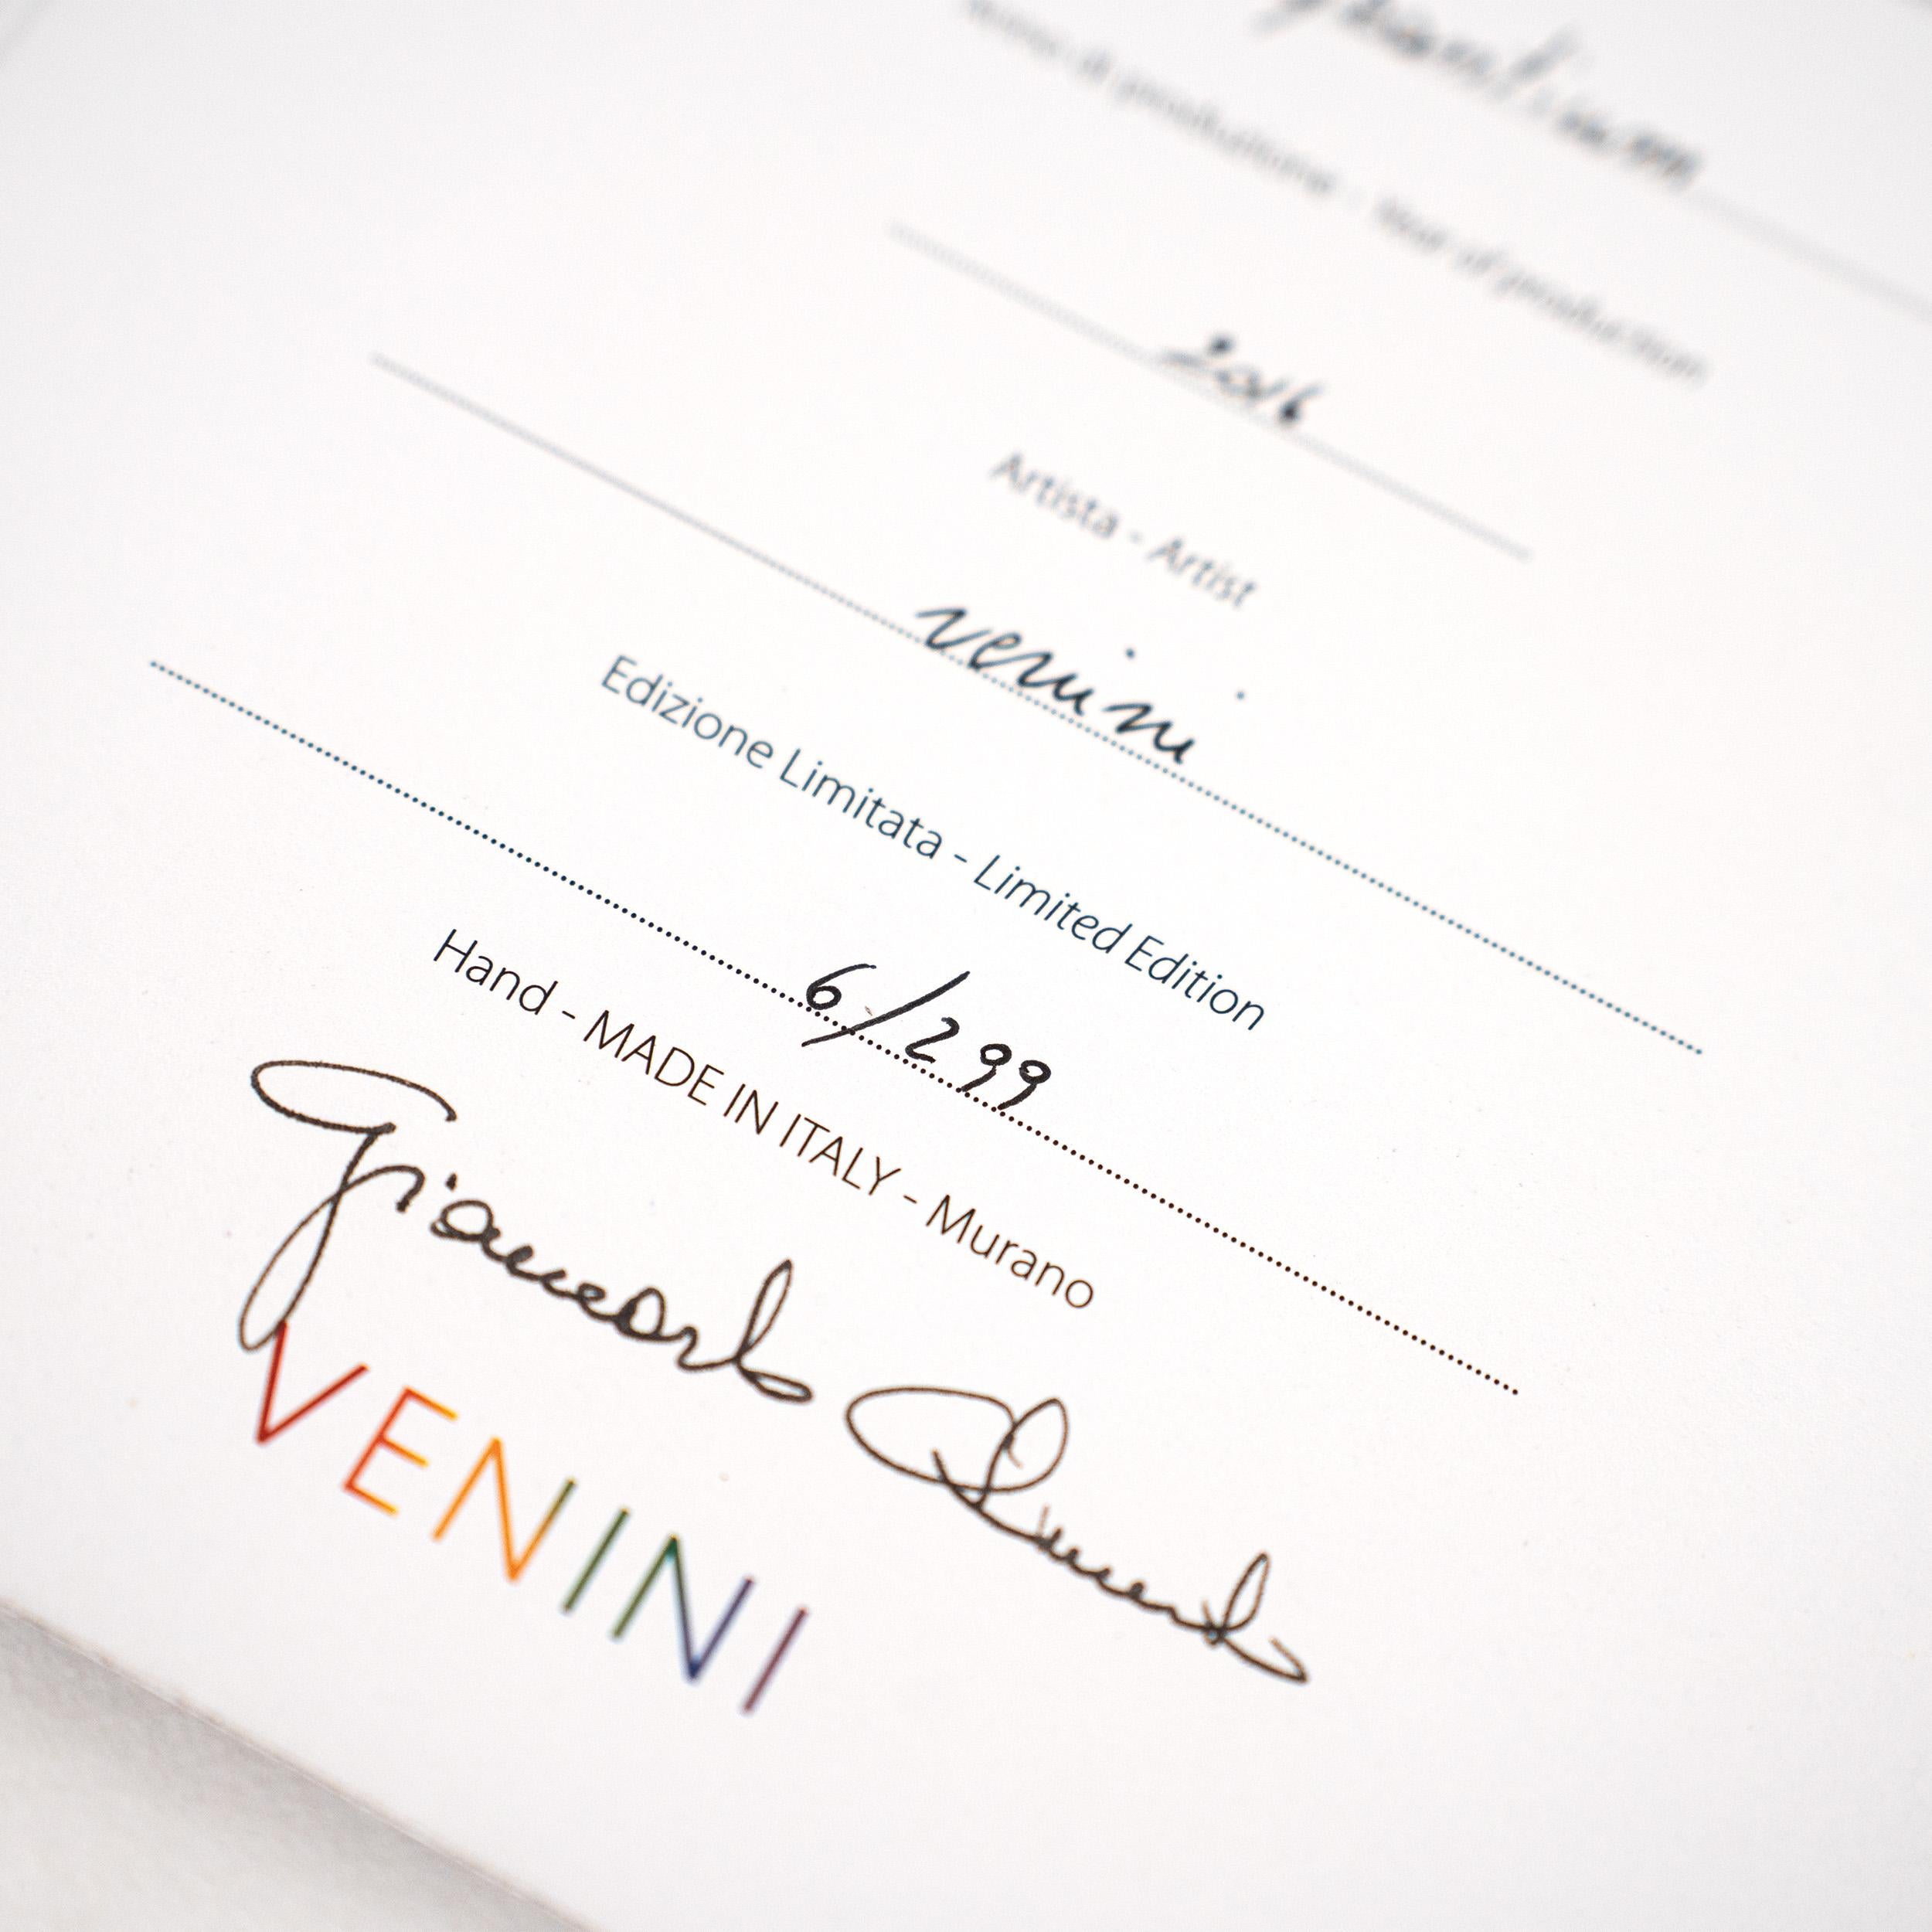 di produzione - Year of production
2016
Artista - Artist
venini
Edizione Limitata - Limited Edition
6/299
Hand - MADE IN ITALY - Murano
Giancarlo
VENINI